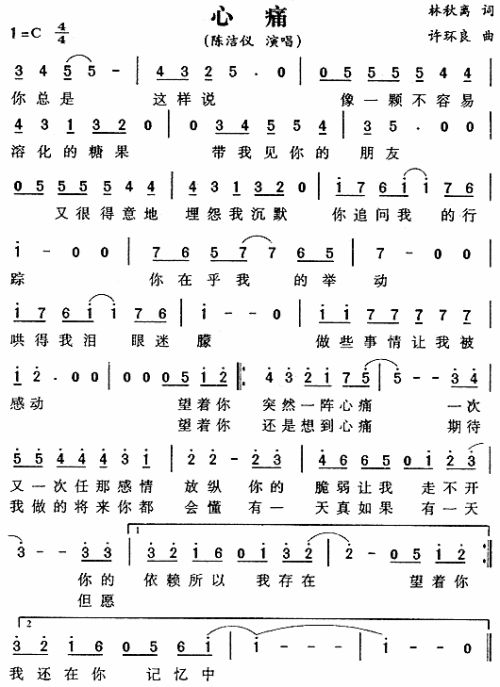 心 痛
林秋离 词
1=C 4/4
(陈洁仪 演唱)
许环良 曲
3 4 5 5 - | 4 3 2 5 . 0 | 0 5 5 5 5 5 4 4 |
你总是 这样说 像一颗不容易
4 3 1 3 2 0 | 0 3 4 5 5 4 | 3 5 . 0 0 |
溶化的糖果 带我见你的 朋友
0 5 5 5 5 5 4 4 | 4 3 1 3 2 0 | i 7 6 i i 7 6 |
又很得意地 埋怨我沉默 你追问我 的行
i - 0 0 | 7 6 5 7 7 6 5 | 7 - 0 0 |
踪 你在乎我 的举 动
i 7 6 i i 7 6 | i - - 0 | i i 7 7 7 7 7 |
哄得我泪 眼迷 朦 做些事情让我被
i 2 . 0 0 | 0 0 0 5 i 2 :| 4 3 2 i 7 5 | 5 - - 3 4 |
感动 望着你 突然一阵心痛 一次
望着你 还是想到心痛 期待
5 5 4 4 4 3 i | 2 2 - 2 3 | 4 6 6 5 0 i 2 3 |
又一次任那感情 放纵 你的 脆弱让我 走不开
我做的将来你都 会懂 有一 天真如果 有一天
3 - - 3 3 | 3 2 i 6 0 i 3 2 | 2 - 0 5 i 2 :|
1
你的 依赖所以 我存在 望着你
但愿
2
3 2 i 6 0 5 6 i | i - - - | i - - 0 ‖
我还在你 记忆中